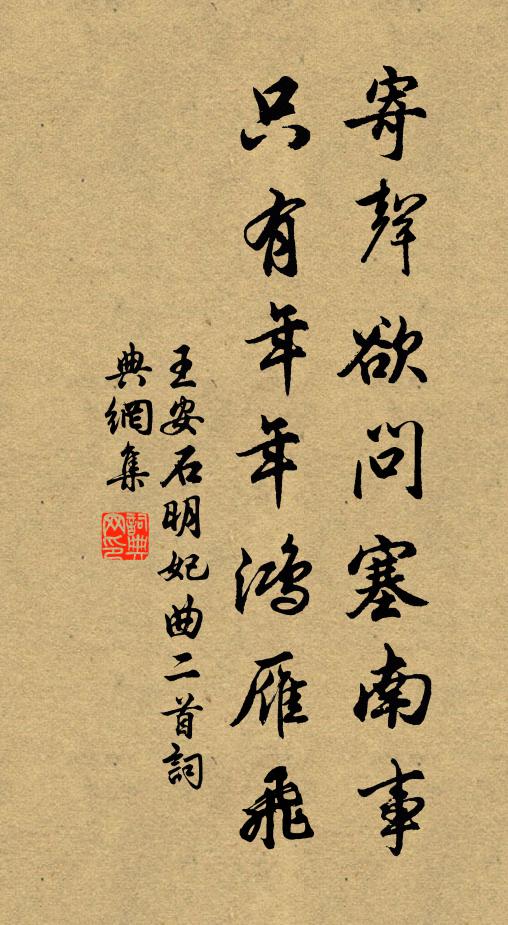 寄聲欲問塞南事
只有年年鴻雁飛
王安石明妃曲二首詞
典網集
詞典網印